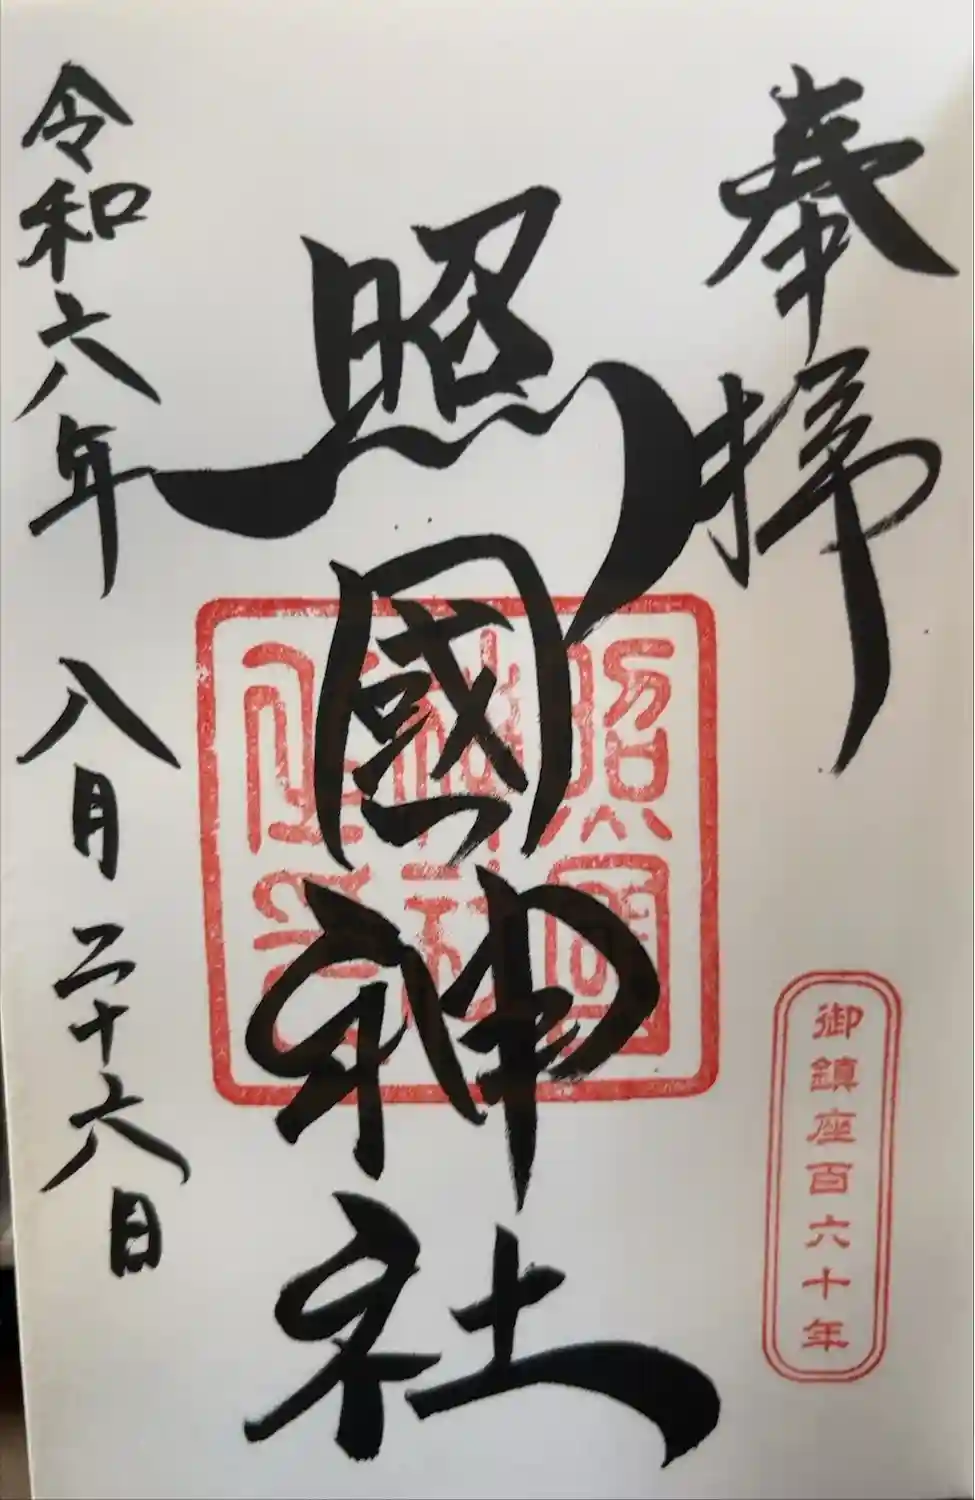 奉拝
御鎮座百六十年
照國神社
照國神社之印
令和六年 八月二十六日